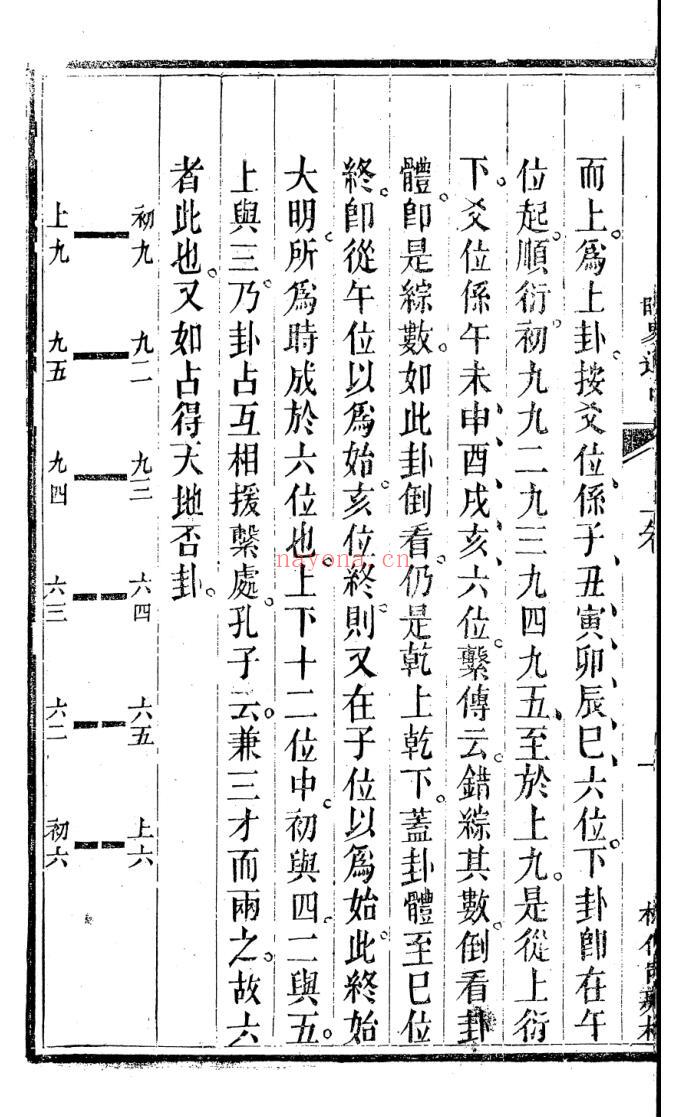 而上爲上卦按爻位係子丑寅卯辰巳六位下卦卽在午
位起順衍初九九二九三九四九五至於上九是從上衍
下爻位係午未申酉戌亥六位繫傳云錯綜其數倒看卦
體卽是綜數如此卦倒看仍是乾上乾下葢卦體至巳位
終卽從午位以爲始亥位終則又在子位以爲始此終始
大明所爲時成於六位也上下十二位中初與四二與五
上與三乃卦占互相援繫處孔子云兼三才而兩之故六
者此也又如占得天地否卦
初九 九二 九三 六四 六五 上六
上九 九五 九四 六三 六二 初六
nayona.cn